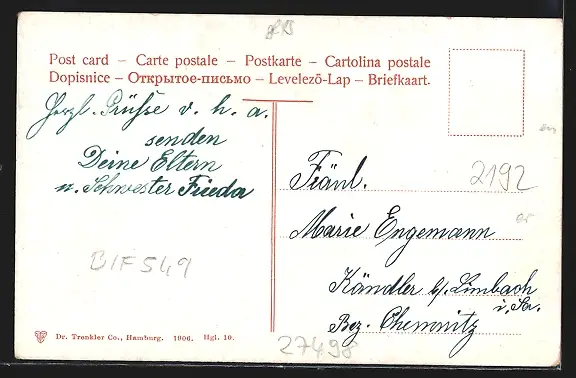 Post card – Carte postale – Postkarte – Cartolina postale
Dopisnice – Открытое-письмо – Levelező-Lap – Briefkaart.
Herzl. Grüsse v. h. a.
senden
Deine Eltern
u. Schwester Frieda
Fräul.
2192
Marie Engemann
Kändler b/. Limbach
i. Sa.
Bez. Chemnitz
B1F549
27498
Dr. Trenkler Co., Hamburg. 1906. Hgl. 10.